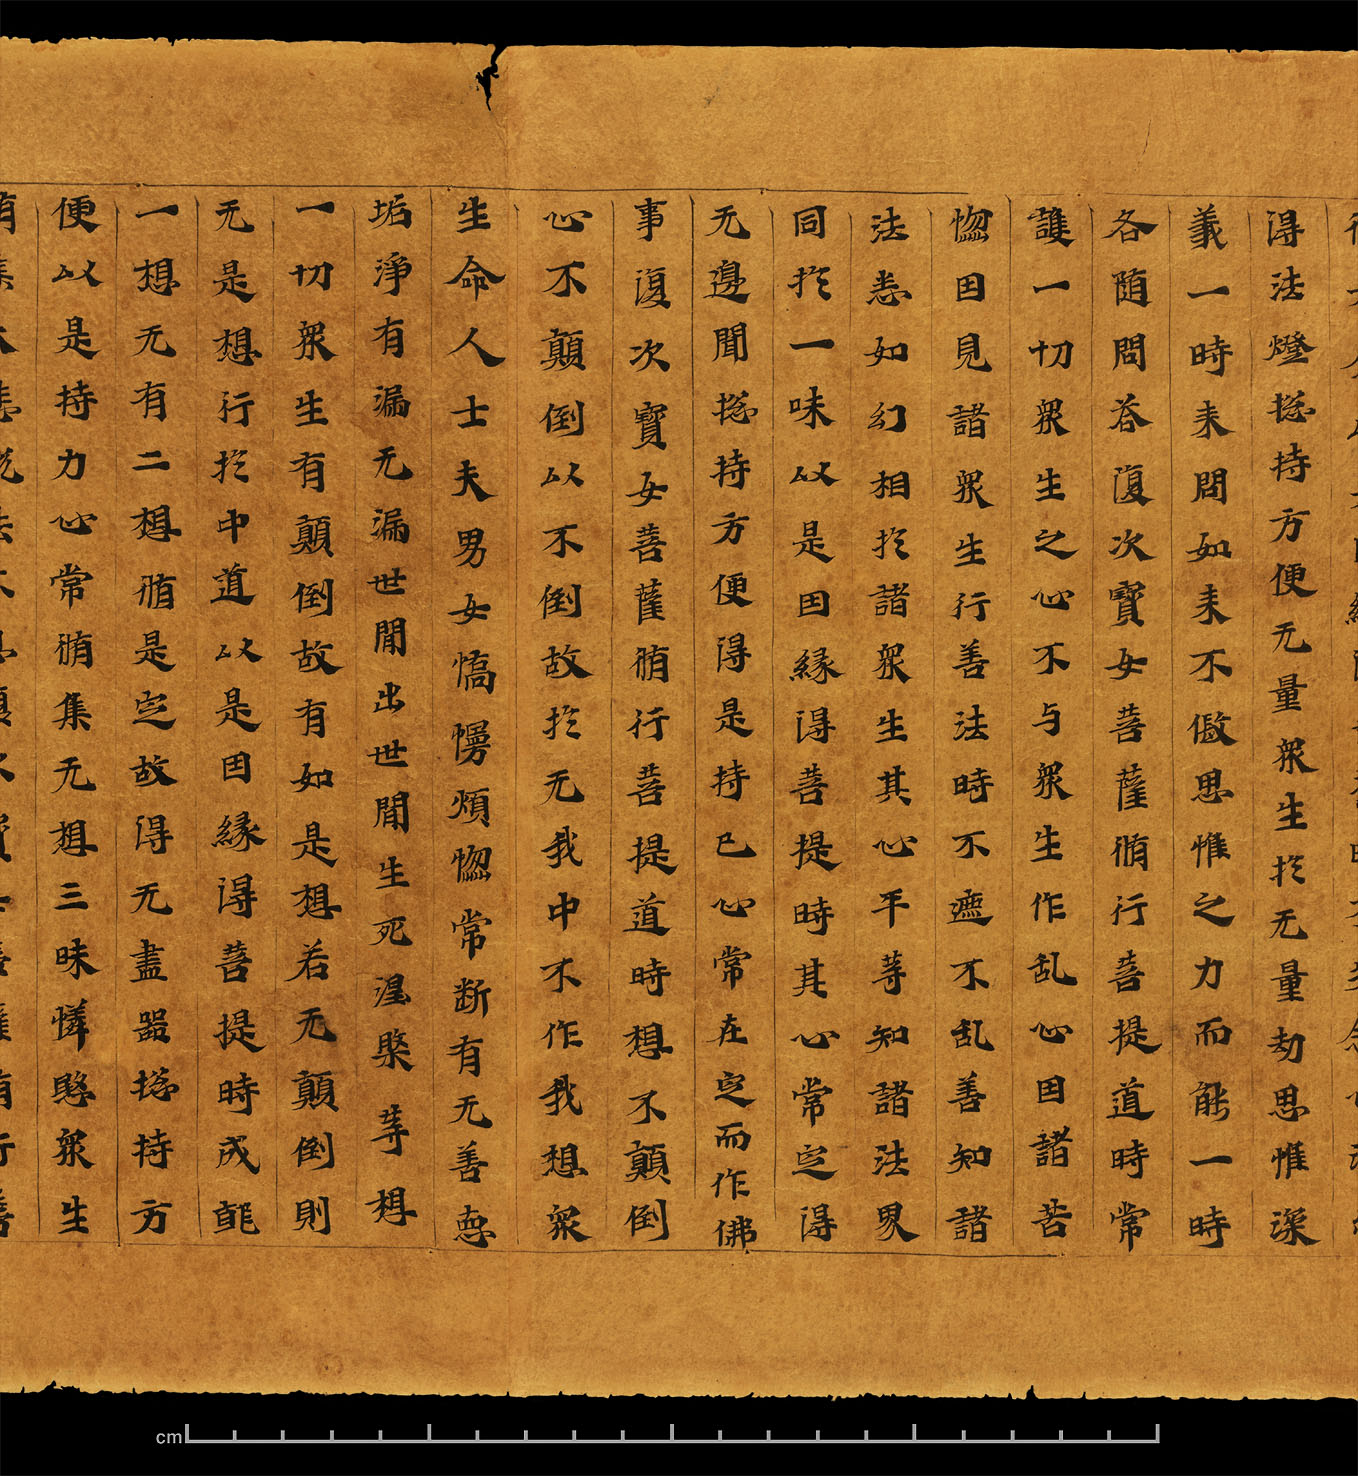 得法燈捴持方便无量衆生於无量劫思惟深
義一時来問如来不假思惟之力而能一時
各随問荅復次寳女菩薩脩行菩提道時常
護一切衆生之心不与衆生作乱心因諸苦
惱因見諸衆生行善法時不遮不乱善知諸
法悉如幻相於諸衆生其心平等知諸法界
同於一味以是因縁得菩提時其心常定得
无邊聞捴持方便得是持已心常在定而作佛
事復次寳女菩薩脩行菩提道時想不顛倒
心不顛倒以不倒故於无我中不作我想衆
生命人士夫男女憍慢煩惱常断有无善惡
垢淨有漏无漏世間出世間生死涅槃等想
一切衆生有顛倒故有如是想若无顛倒則
无是想行於中道以是因縁得菩提時成就
一想无有二想脩是定故得无盡器捴持方
便以是持力心常脩集无想三昧憐愍衆生